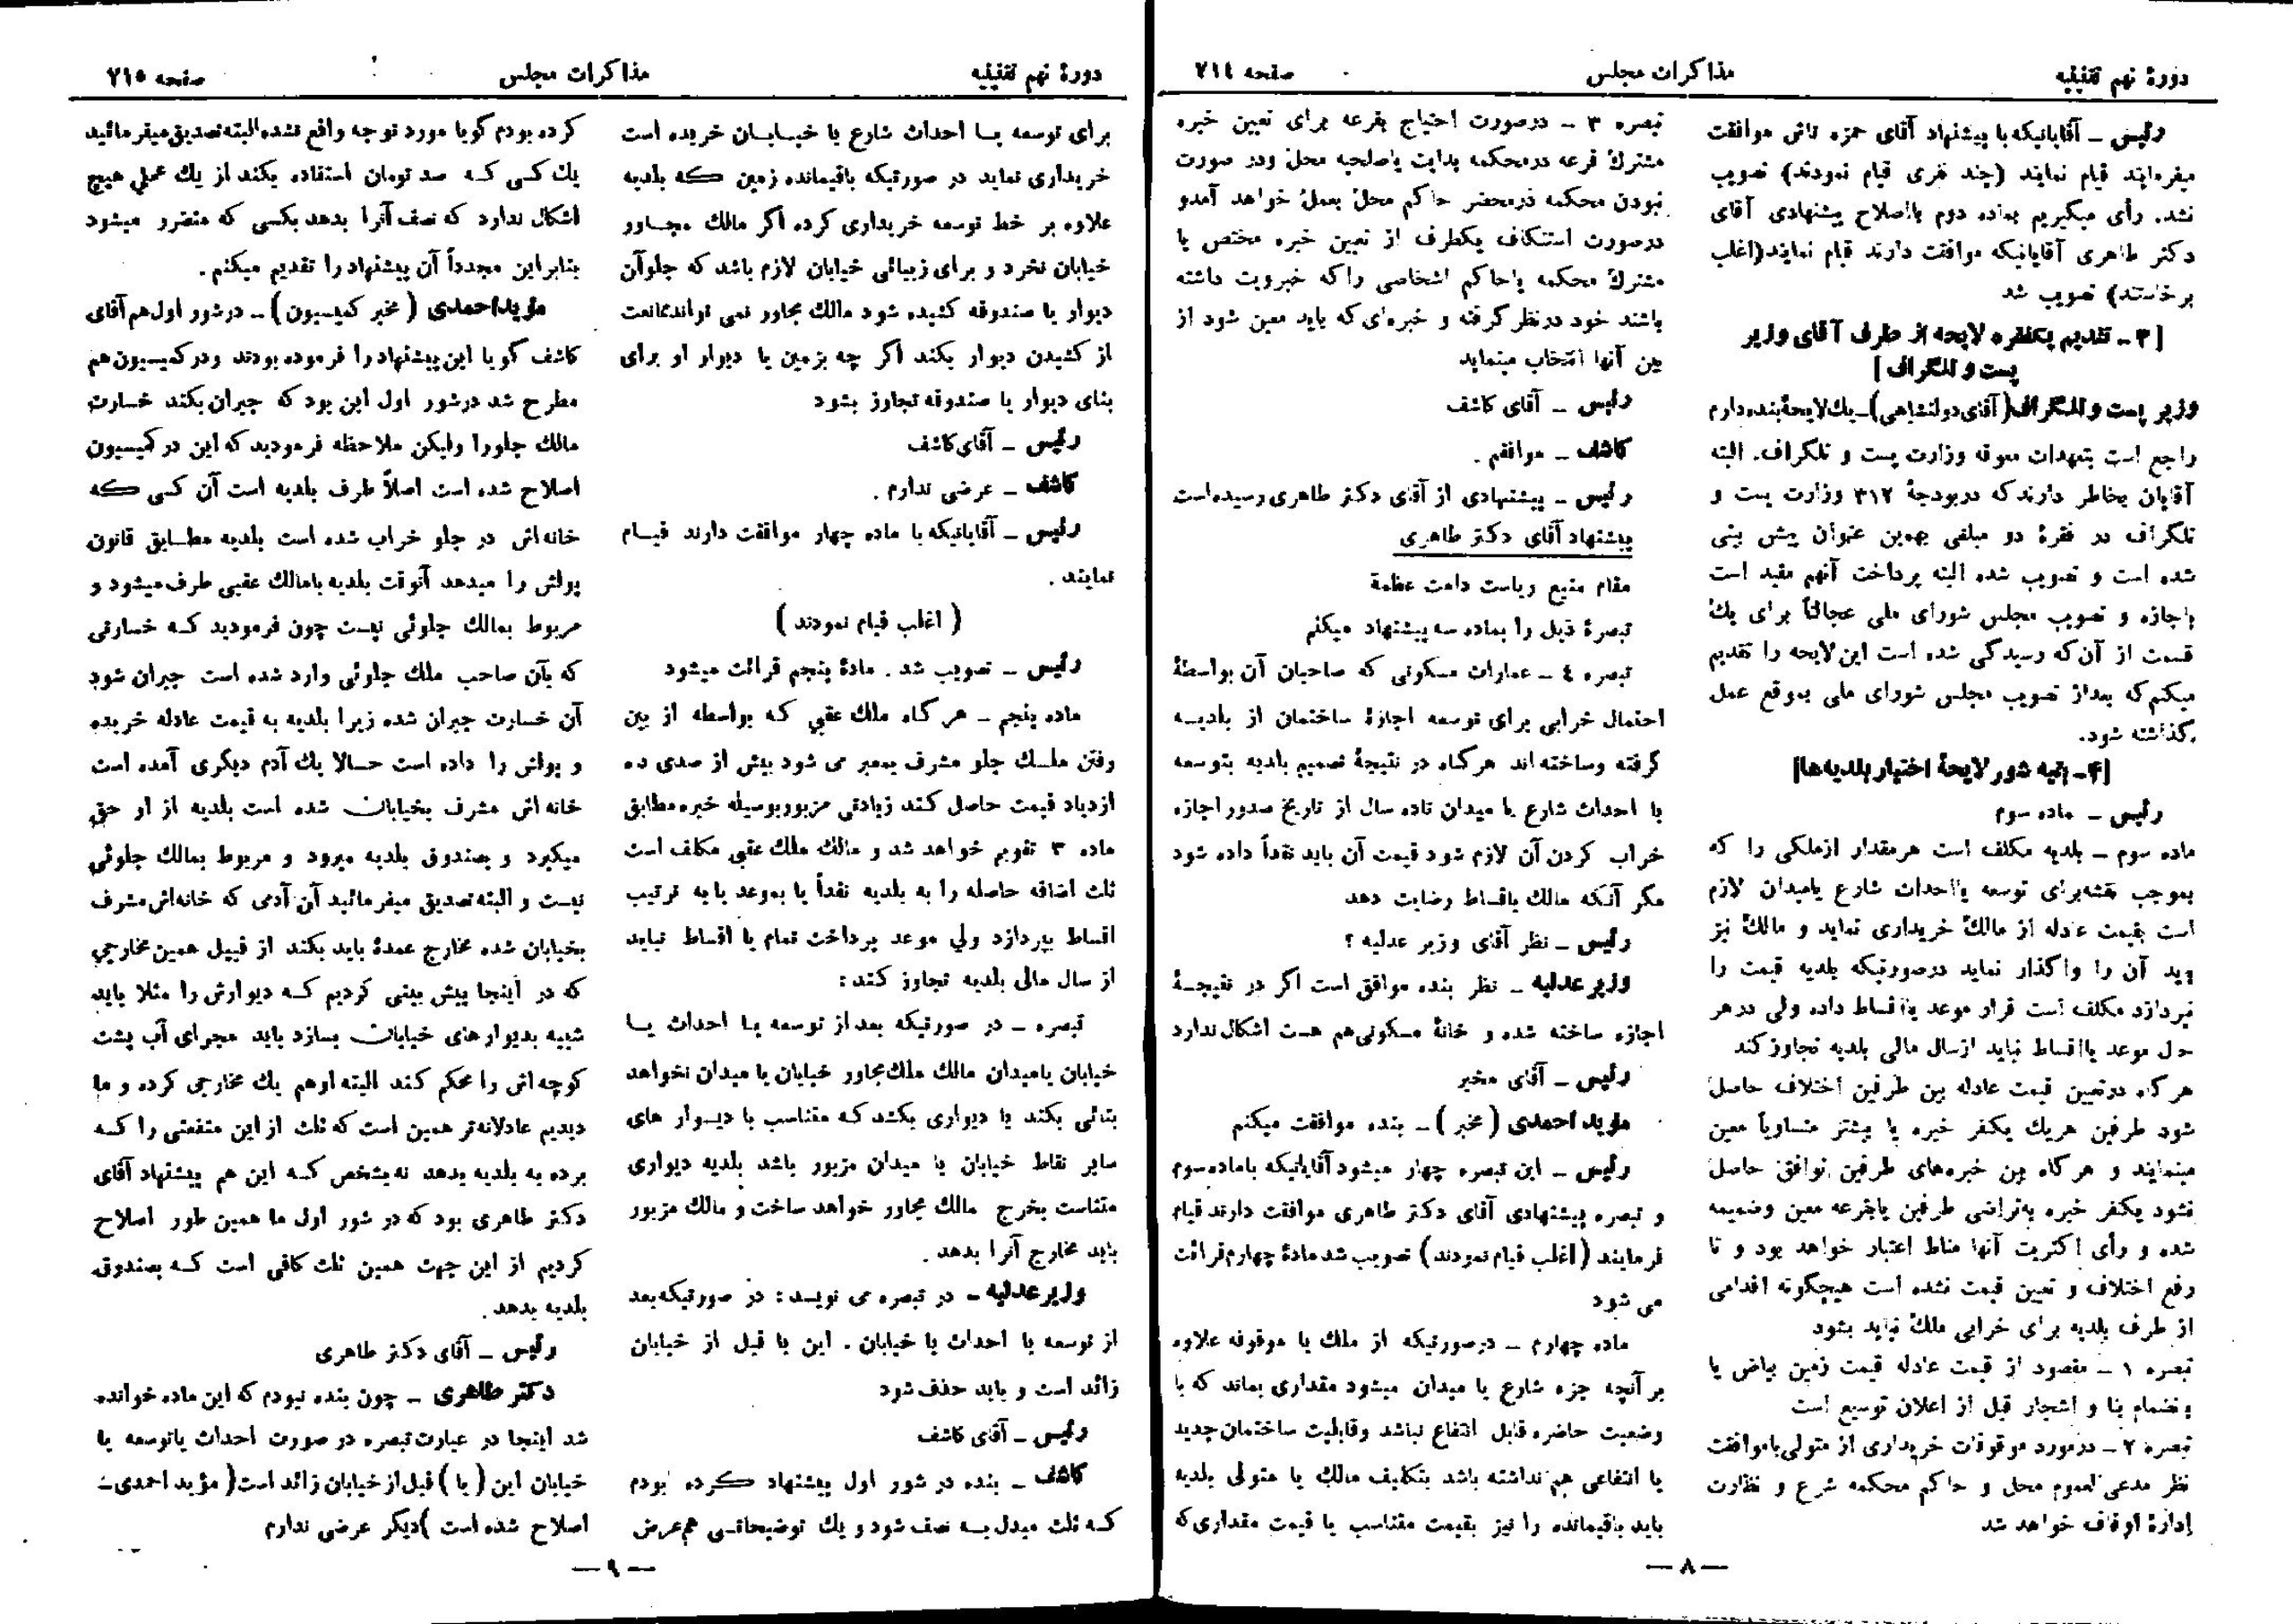 دورهٔ نهم تقنینیه
مذاکرات مجلس
صفحه ۷۱۴
رئیس ــ آقایانیکه با پیشنهاد آقای حمزه تاش موافقت
میفرمایند قیام نمایند (چند نفری قیام نمودند) تصویب
نشد. رأی میگیریم بماده دوم بااصلاح پیشنهادی آقای
دکتر طاهری آقایانیکه موافقت دارند قیام نمایند(اغلب
برخاستند) تصویب شد
[۳ ــ تقدیم یکفقره لایحه از طرف آقای وزیر
پست و تلگراف]
وزیر پست و تلگراف(آقای دولتشاهی)ــ یك لایحهٔ بنده دارم
راجع است بتعهدات معوقه وزارت پست و تلگراف. البته
آقایان بخاطر دارند که در بودجهٔ ۳۱۲ وزارت پست و
تلگراف در فقرهٔ دو مبلغی بهمین عنوان پیش بینی
شده است و تصویب شده البته پرداخت آنهم مقید است
باجازه و تصویب مجلس شورای ملی عجالتاً برای یك
قسمت از آن که رسیدگی شده است این لایحه را تقدیم
میکنم که بعد از تصویب مجلس شورای ملی بموقع عمل
گذاشته شود.
[۴ــ بقیه شور لایحهٔ اختیار بلدیه‌ها]
رئیس ــ ماده سوم
ماده سوم ــ بلدیه مکلف است هر مقدار از ملکی را که
بموجب نقشه برای توسعه یا احداث شارع یا میدان لازم
است بقیمت عادله از مالك خریداری نماید و مالك نیز
باید آن را واگذار نماید درصورتیکه بلدیه قیمت را
نپردازد مکلف است قرار موعد یا اقساط داده ولی در هر
حال موعد یا اقساط نباید از سال مالی بلدیه تجاوز کند
هر گاه در تعیین قیمت عادله بین طرفین اختلاف حاصل
شود طرفین هریك یکنفر خبره یا بیشتر متساویاً معین
مینمایند و هر گاه بین خبره‌های طرفین توافق حاصل
نشود یکنفر خبره بتراضی طرفین یا بقرعه معین و ضمیمه
شده و رأی اکثریت آنها مناط اعتبار خواهد بود و تا
رفع اختلاف و تعیین قیمت نشده است هیچگونه اقدامی
از طرف بلدیه برای خرابی ملك نباید بشود
تبصره ۱ ــ مقصود از قیمت عادله قیمت زمین بیاض یا
بانضمام بنا و اشجار قبل از اعلان توسیع است
تبصره ۲ ــ درمورد موقوفات خریداری از متولی با موافقت
نظر مدعی العموم محل و حاکم محکمه شرع و نظارت
ادارهٔ اوقاف خواهد شد
تبصره ۳ ــ درصورت احتیاج بقرعه برای تعیین خبره
مشترك قرعه درمحکمه بدایت یا صلحیه محل و در صورت
نبودن محکمه در محضر حاکم محل بعمل خواهد آمد و
درصورت استنکاف یکطرف از تعیین خبره مختص یا
مشترك محکمه یا حاکم اشخاصی را که خبرویت داشته
باشند خود در نظر گرفته و خبره‌ای که باید معین شود از
بین آنها انتخاب مینماید
رئیس ــ آقای کاشف
کاشف ــ موافقم .
رئیس ــ پیشنهادی از آقای دکتر طاهری رسیده است
پیشنهاد آقای دکتر طاهری
مقام منیع ریاست دامت عظمة
تبصرهٔ ذیل را بماده سه پیشنهاد میکنم
تبصره ٤ ــ عمارات مسکونی که صاحبان آن بواسطهٔ
احتمال خرابی برای توسعه اجازهٔ ساختمان از بلدیه
گرفته و ساخته اند هر گاه در نتیجهٔ تصمیم بلدیه بتوسعه
یا احداث شارع یا میدان تاده سال از تاریخ صدور اجازه
خراب کردن آن لازم شود قیمت آن باید نقداً داده شود
مگر آنکه مالك باقساط رضایت دهد
رئیس ــ نظر آقای وزیر عدلیه ؟
وزیر عدلیه ــ نظر بنده موافق است اگر در نتیجهٔ
اجازه ساخته شده و خانهٔ مسکونی هم هست اشکال ندارد
رئیس ــ آقای مخبر
مؤید احمدی (مخبر) ــ بنده موافقت میکنم
رئیس ــ این تبصره چهار میشود آقایانیکه با ماده سوم
و تبصره پیشنهادی آقای دکتر طاهری موافقت دارند قیام
فرمایند (اغلب قیام نمودند) تصویب شد مادهٔ چهارم قرائت
می شود
ماده چهارم ــ درصورتیکه از ملك یا موقوفه علاوه
بر آنچه جزء شارع یا میدان میشود مقداری بماند که با
وضعیت حاضره قابل انتفاع نباشد وقابلیت ساختمان جدید
یا انتفاعی هم نداشته باشد بتکلیف مالك یا متولی بلدیه
باید باقیمانده را نیز بقیمت متناسب با قیمت مقداری که
ــ ۸ ــ
دورهٔ نهم تقنینیه
مذاکرات مجلس
صفحه ۷۱۵
برای توسعه یا احداث شارع یا خیابان خریده است
خریداری نماید در صورتیکه باقیمانده زمین که بلدیه
علاوه بر خط توسعه خریداری کرده اگر مالك مجاور
خیابان نخرد و برای زیبائی خیابان لازم باشد که جلو آن
دیوار یا صندوقه کشیده شود مالك مجاور نمی تواند ممانعت
از کشیدن دیوار بکند اگر چه بزمین یا دیوار او برای
بنای دیوار یا صندوقه تجاوز بشود
رئیس ــ آقای کاشف
کاشف ــ عرضی ندارم .
رئیس ــ آقایانیکه با ماده چهار موافقت دارند قیام
نمایند .
( اغلب قیام نمودند )
رئیس ــ تصویب شد . مادهٔ پنجم قرائت میشود
ماده پنجم ــ هر گاه ملك عقبی که بواسطه از بین
رفتن ملك جلو مشرف بمعبر می شود بیش از صدی ده
ازدیاد قیمت حاصل کند زیادتی مزبور بوسیله خبره مطابق
ماده ۳ تقویم خواهد شد و مالك ملك عقبی مکلف است
ثلث اضافه حاصله را به بلدیه نقداً یا بموعد یا به ترتیب
اقساط بپردازد ولی موعد پرداخت تمام یا اقساط نباید
از سال مالی بلدیه تجاوز کند :
تبصره ــ در صورتیکه بعد از توسعه یا احداث یا
خیابان یا میدان مالك ملك مجاور خیابان یا میدان نخواهد
بنائی بکند یا دیواری بکشد که متناسب با دیوار های
سایر نقاط خیابان یا میدان مزبور باشد بلدیه دیواری
متناسب بخرج مالك مجاور خواهد ساخت و مالك مزبور
باید مخارج آنرا بدهد .
وزیر عدلیه ــ در تبصره می نویسد : در صورتیکه بعد
از توسعه یا احداث یا خیابان . این یا قبل از خیابان
زائد است و باید حذف شود
رئیس ــ آقای کاشف
کاشف ــ بنده در شور اول پیشنهاد کرده بودم
که ثلث مبدل به نصف شود و یك توضیحاتی هم عرض
کرده بودم گویا مورد توجه واقع نشده البته تصدیق میفرمائید
یك کسی که صد تومان استفاده بکند از یك عملی هیچ
اشکال ندارد که نصف آنرا بدهد بکسی که متضرر میشود
بنابر این مجدداً آن پیشنهاد را تقدیم میکنم .
مؤید احمدی (مخبر کمیسیون) ــ در شور اول هم آقای
کاشف گویا این پیشنهاد را فرموده بودند و در کمیسیون هم
مطرح شد در شور اول این بود که جبران بکند خسارت
مالك جلو را ولیکن ملاحظه فرمودید که این در کمیسیون
اصلاح شده است اصلاً طرف بلدیه است آن کسی که
خانه‌اش در جلو خراب شده است بلدیه مطابق قانون
پولش را میدهد آنوقت بلدیه با مالك عقبی طرف میشود و
مربوط بمالك جلوئی نیست چون فرمودید که خسارتی
که بآن صاحب ملك جلوئی وارد شده است جبران شود
آن خسارت جبران شده زیرا بلدیه به قیمت عادله خریده
و پولش را داده است حالا یك آدم دیگری آمده است
خانه اش مشرف بخیابان شده است بلدیه از او حق
میگیرد و بصندوق بلدیه میرود و مربوط بمالك جلوئی
نیست و البته تصدیق میفرمائید آن آدمی که خانه‌اش مشرف
بخیابان شده مخارج عمدهٔ باید بکند از قبیل همین مخارجی
که در اینجا پیش بینی کردیم که دیوارش را مثلا باید
شبیه بدیوار های خیابان بسازد باید مجرای آب پشت
کوچه اش را محکم کند البته او هم یك مخارجی کرده و ما
دیدیم عادلانه‌تر همین است که ثلث از این منفعتی را که
برده به بلدیه بدهد نه بشخص که این هم پیشنهاد آقای
دکتر طاهری بود که در شور اول ما همین طور اصلاح
کردیم از این جهت همین ثلث کافی است که بصندوق
بلدیه بدهد .
رئیس ــ آقای دکتر طاهری
دکتر طاهری ــ چون بنده نبودم که این ماده خوانده
شد اینجا در عبارت تبصره در صورت احداث یا توسعه یا
خیابان این ( یا ) قبل از خیابان زائد است ( مؤید احمدی ــ
اصلاح شده است ) دیگر عرضی ندارم
ــ ۹ ــ